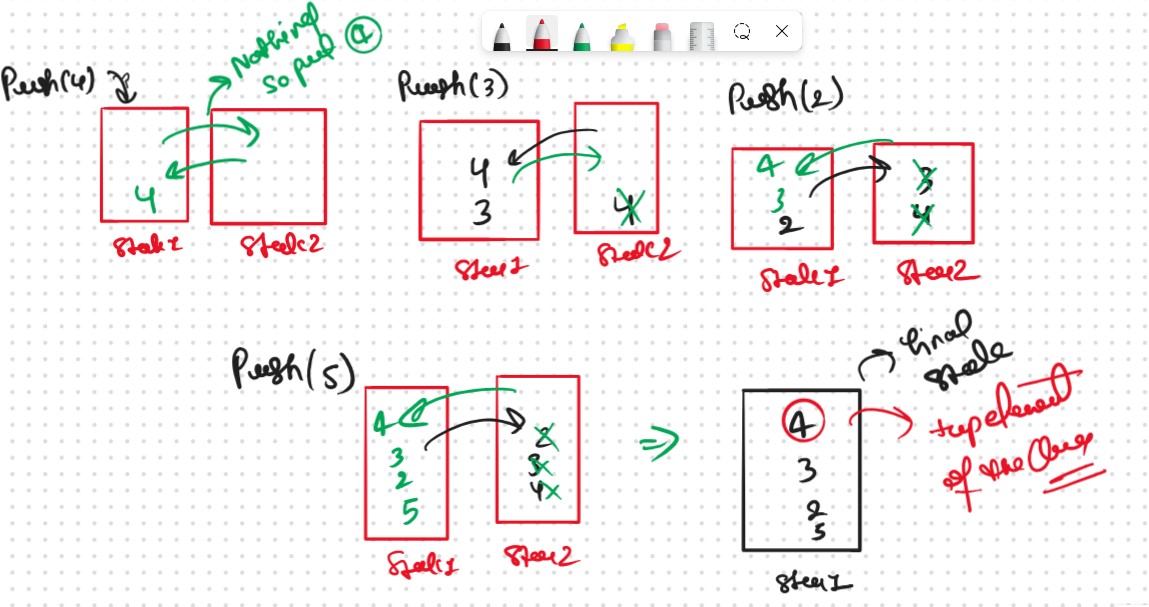 Nothing
so put 4
Push(4)
4
Stack1
Stack2
Push(3)
4
3
4
Stack1
Stack2
Push(2)
4
3
2
3
4
Stack1
Stack2
Push(5)
4
3
2
5
2
3
4
Stack1
Stack2
final
stack
4
3
2
5
Stack1
top element
of the Queue